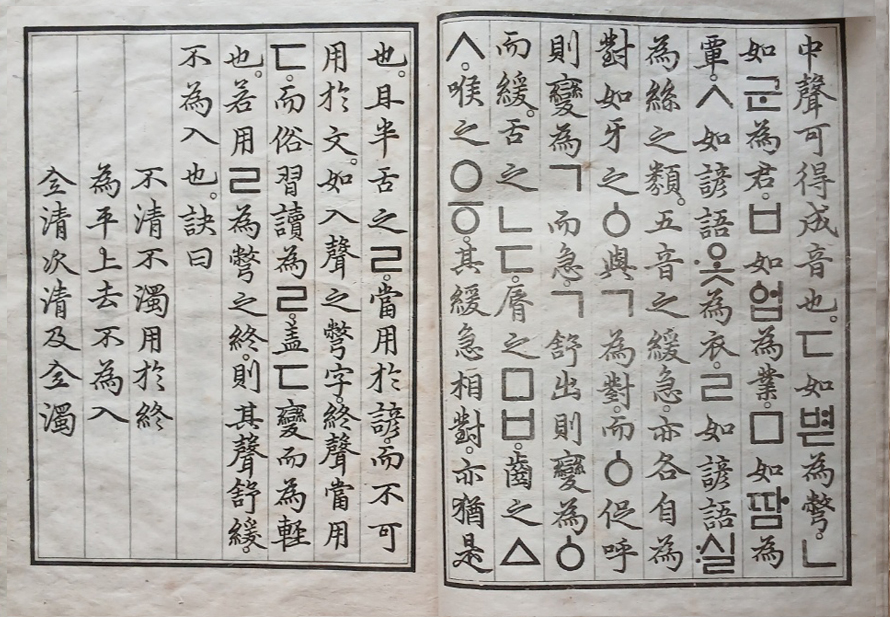 中聲可得成音也。ㄷ如볃為彆。ㄴ
如군為君。ㅂ如ᅌᅥᆸ為業。ㅁ如땀為
覃。ㅅ如諺語·옷為衣。ㄹ如諺語:실
為絲之類。五音之緩急。亦各自為
對如牙之ㆁ與ㄱ為對。而ㆁ促呼
則變為ㄱ而急。ㄱ舒出則變為ㆁ
而緩。舌之ㄴㄷ。脣之ㅁㅂ。齒之ㅿ
ㅅ。喉之ㅇㆆ。其緩急相對。亦猶是
也。且半舌之ㄹ。當用於諺。而不可
用於文。如入聲之彆字。終聲當用
ㄷ。而俗習讀為ㄹ。盖ㄷ變而為輕
也。若用ㄹ為彆之終。則其聲舒緩。
不為入也。訣曰
不清不濁用於終
為平上去不為入
全清次清及全濁